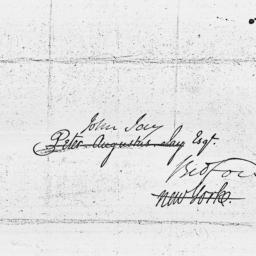 John Jay
Peter Augustus Jay Esqr.
Bedfor
New York